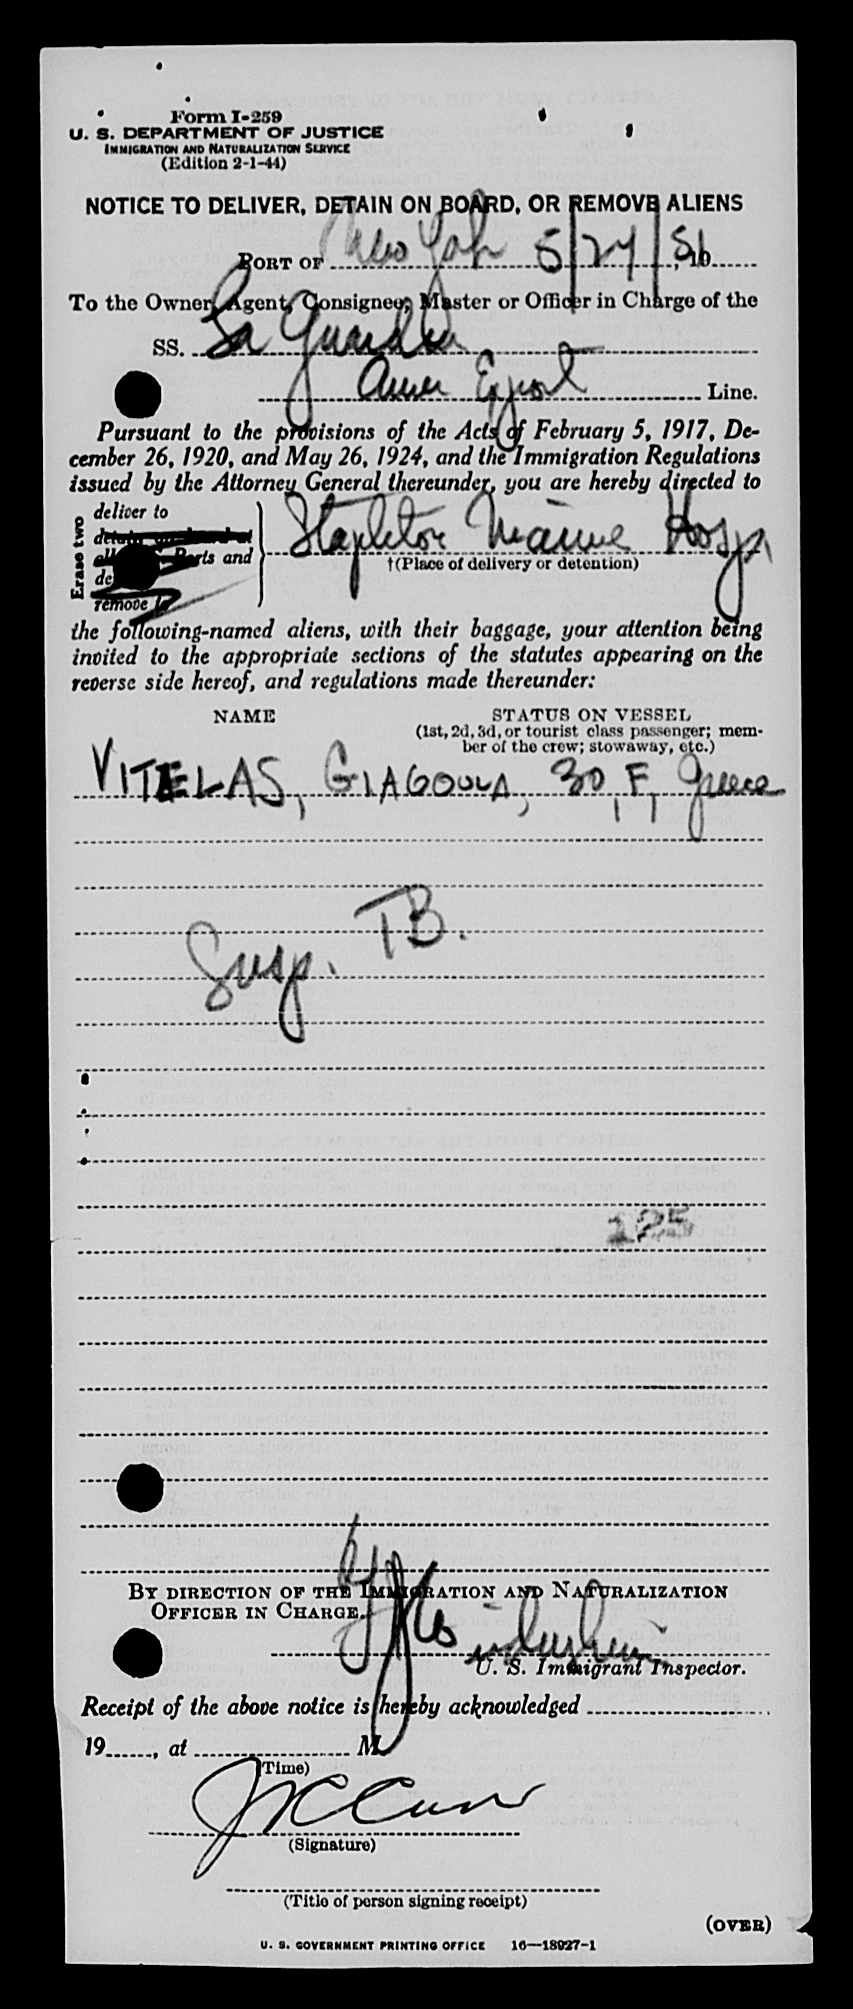 Form I-259
U. S. DEPARTMENT OF JUSTICE
IMMIGRATION AND NATURALIZATION SERVICE
(Edition 2-1-44)
NOTICE TO DELIVER, DETAIN ON BOARD, OR REMOVE ALIENS
PORT OF New York 5/24/51
To the Owner, Agent, Consignee, Master or Officer in Charge of the
SS. La Guardia
Amer Export Line.
Pursuant to the provisions of the Acts of February 5, 1917, De-
cember 26, 1920, and May 26, 1924, and the Immigration Regulations
issued by the Attorney General thereunder, you are hereby directed to
Erase two
deliver to
detain on board at
Ports and
remove
Stapleton Marine Hosp.
†(Place of delivery or detention)
the following-named aliens, with their baggage, your attention being
invited to the appropriate sections of the statutes appearing on the
reverse side hereof, and regulations made thereunder:
NAME STATUS ON VESSEL
(1st, 2d, 3d, or tourist class passenger; mem-
ber of the crew; stowaway, etc.)
VITELAS, GIAGOULA, 30, F, Greece
Susp. TB.
125
BY DIRECTION OF THE IMMIGRATION AND NATURALIZATION
OFFICER IN CHARGE.
U. S. Immigrant Inspector.
Receipt of the above notice is hereby acknowledged
19......, at M.
(Time)
(Signature)
(Title of person signing receipt)
(OVER)
U. S. GOVERNMENT PRINTING OFFICE 16—18927-1